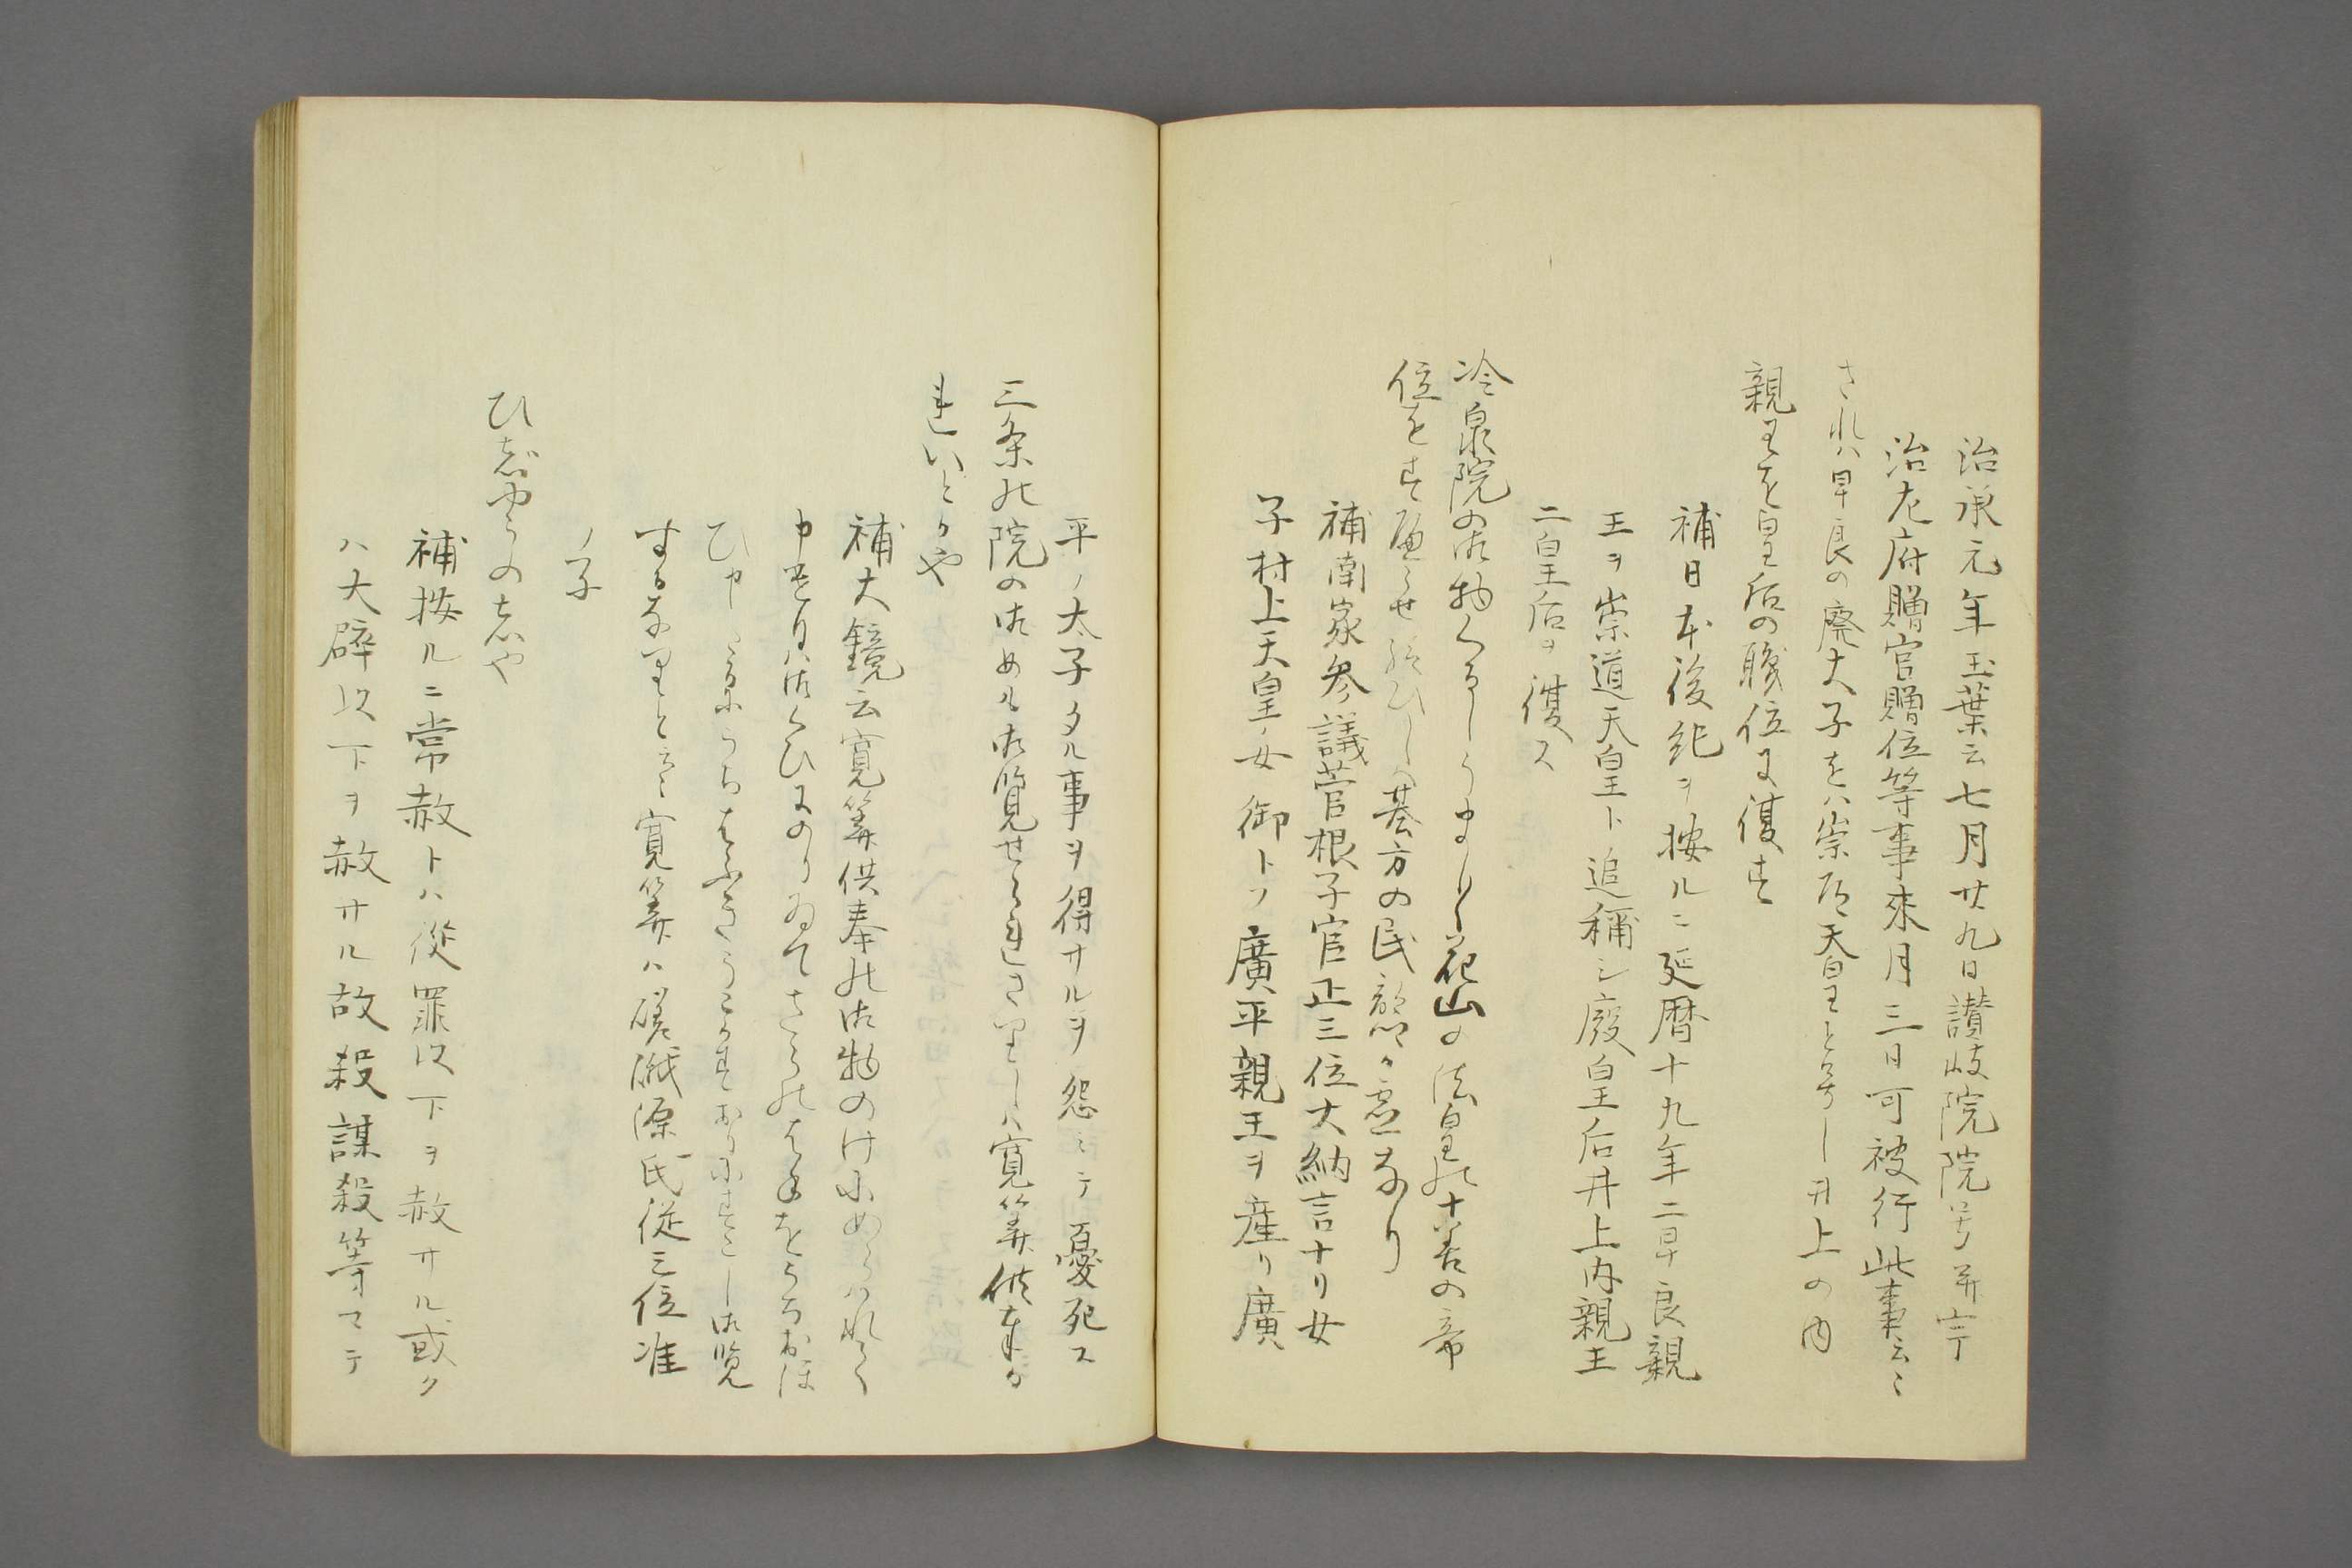 治承元年玉葉云七月廿九日讃岐院院号并宇
治左府贈官贈位等事来月三日可被行此事云〻
されハ早良の廃太子をハ崇道天皇と号し井上の内
親王を皇后の職位に復す
補日本後紀ヲ按ルニ延暦十九年ニ早良親
王ヲ崇道天皇ト追稱シ廢皇后井上内親王
ニ皇后ヲ復ス
冷泉院の御物くるしうましく花山の法皇の十善の帝
位をすへらせ給ひしハ基方の民部か霊なり
補南家参議菅根子官正三位大納言ナリ女
子村上天皇ノ女御トソ廣平親王ヲ産リ廣
平ノ太子タル事ヲ得サルヲ怨ミテ憂死ス
三条の院の御めも御覧せられさりしハ寛筭供奉か
れいとかや
補大鏡云寛筭供奉の御物のけにあらハれて
申けるハ御くひにのりゐてさうのはねをうちおほ
ひ申たるにうちはふきうこかすおりにすこし御覧
するなりと云〻寛筭ハ嵯峨源氏従三位准
ノ子
ひじやうの志や
補按ルニ常赦トハ従罪以下ヲ赦サル或ク
ハ大辟以下ヲ赦サル故殺謀殺等マテ